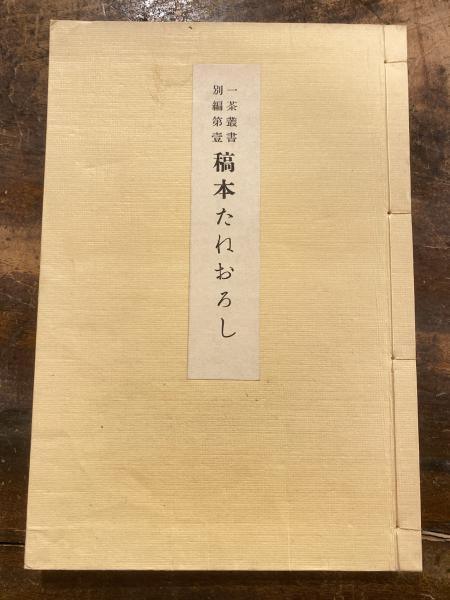 一茶叢書
別編第壹
稿本たねおろし